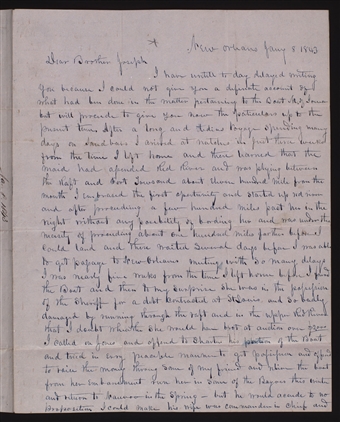 New Orleans Jany 8 1843
Dear Brother Joseph
I have untill to day delayd writing
you because I could not give you a definite account of
what had bin done in the matter pertaining to the Boat
but will proceed to give you now the particulars up to the
present time After a long and tedious Voyage Spending many
days on Sandbars I arived at Natches in just three weeks
from the time I left home and then learned that the
Maid had assended Red River and was plying between
the Raft and Fort Towsand about three hundred mile from the
mouth I embraced the first opertunity and started up
and after proceeding a few hundred miles past her in the
night without any possibility of boarding her and was under the
necessity of proceeding about one hundred miles further before I
could land and there waited Several days before I was able
to get passage to New Orleans meeting with So many delays
I was nearly five weeks from the time I left home before I found
the Boat and then to my Surprise She was in the possession
of the Sherriff for a debt contracted at St Louis and So badly
damaged by running through the raft and in the upper Red River
that I doubt whether She would have brot at auction one
I called on Jone and offerd to Charter his portion of the Boat
and tried in every peacable manner to get possession and offerd
to raise the money through some of my friends and releive the boat
from her embarrasment run her in Some of the Bayous this winter
and return to Nauvoo in the Spring - but he would accede to no
proposition I could make his wife was commander in Chief and